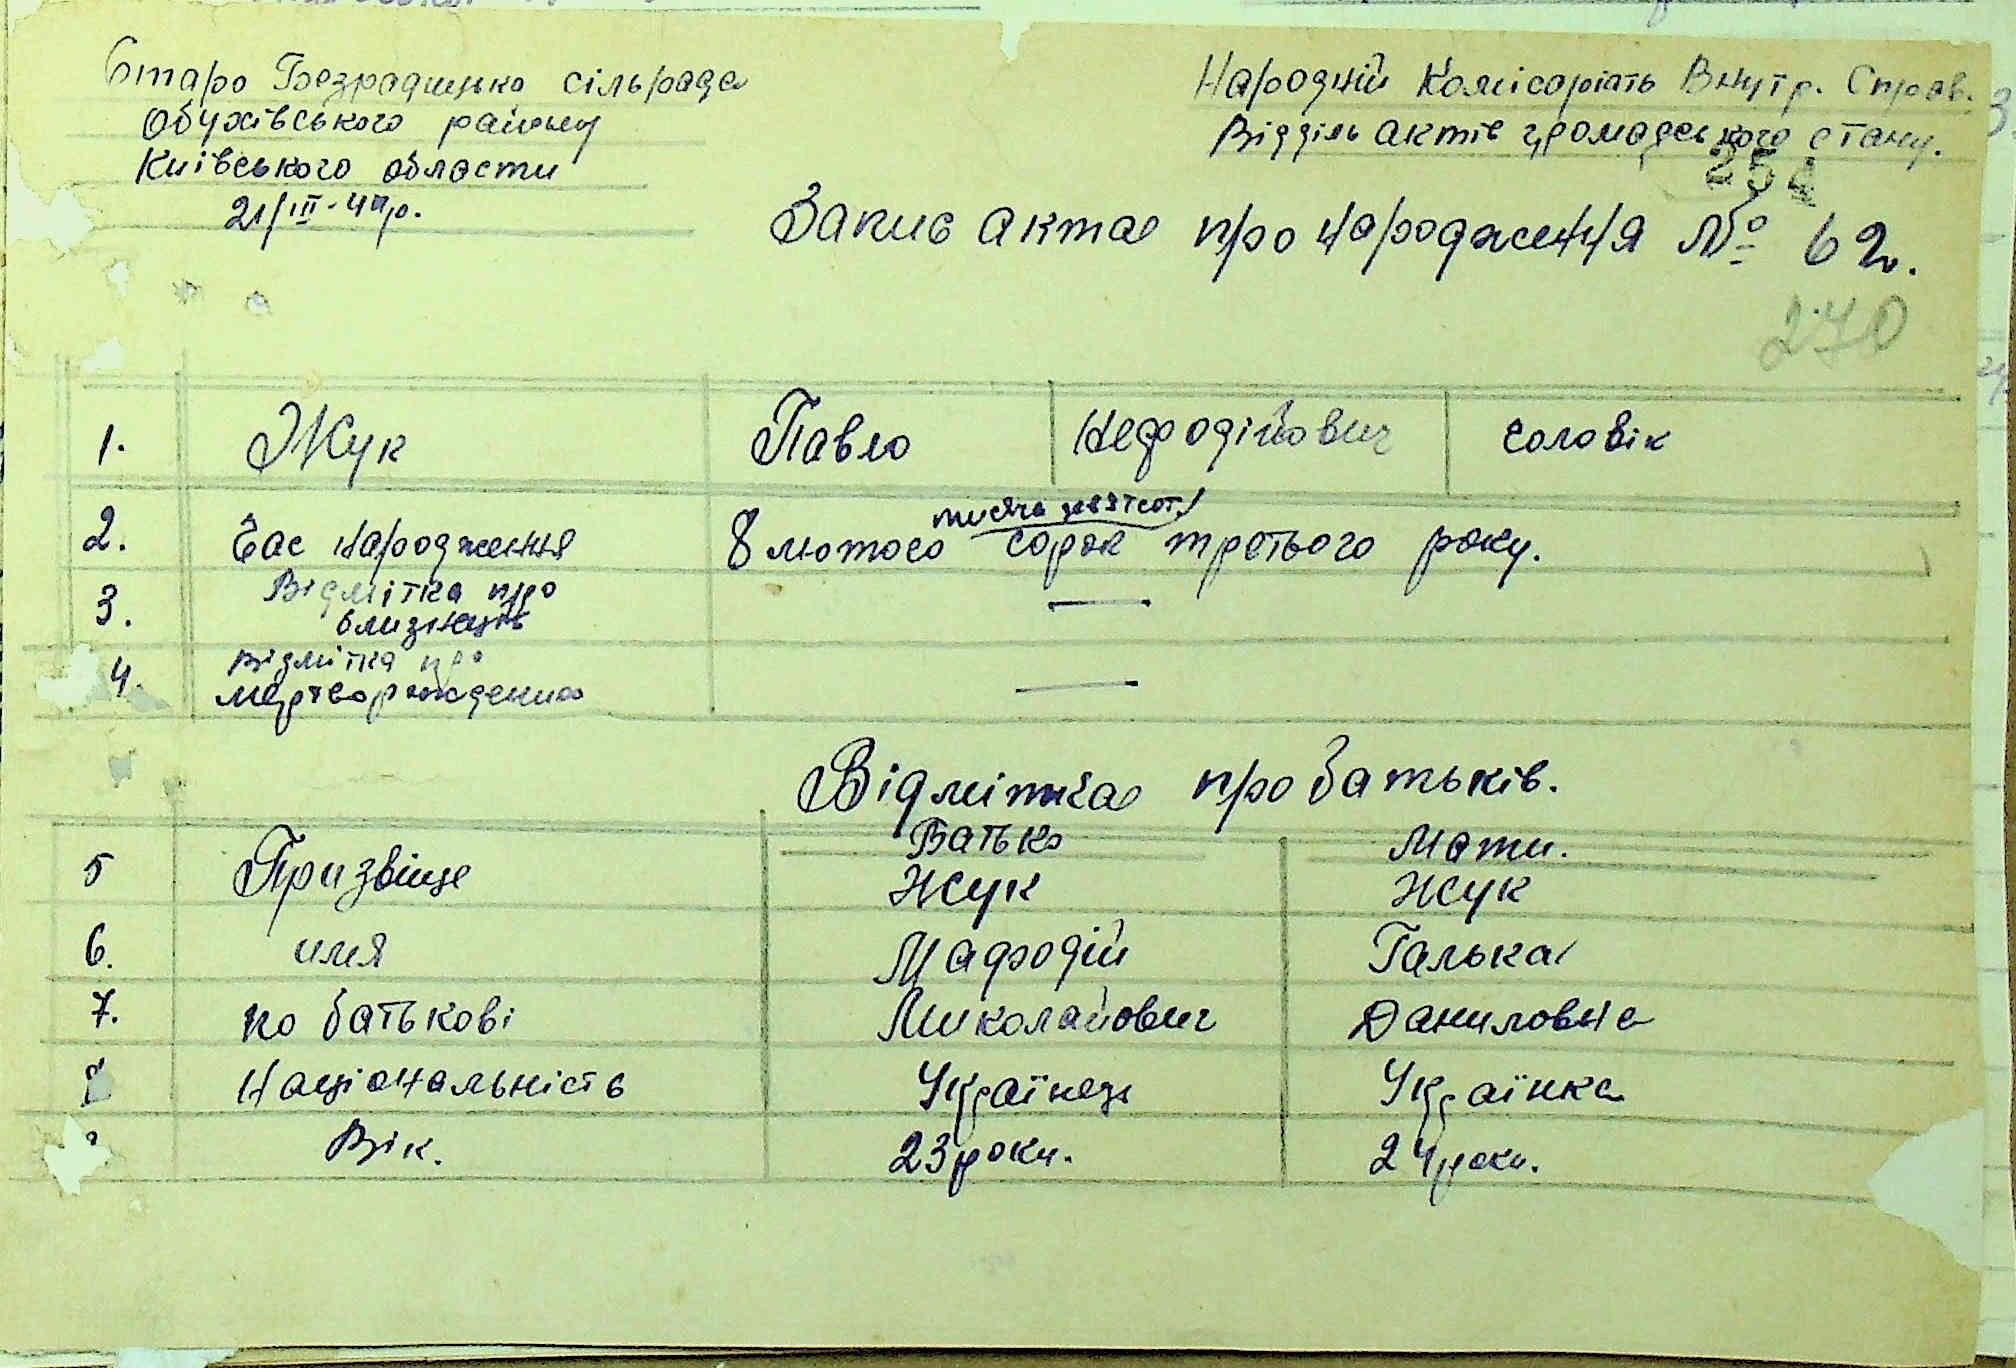 Старо Безрадицько сільрада
Обухівського району
Київського области
21/III-44р.
Народній Комісоріать Внутр. Справ.
Відділь актів громадського стану.
254
Запис акта про народження № 62.
270
1. Жук Павло Нефодійович чоловік
тисяча девятсот
2. Час народження 8 лютого сорок третього року.
3. Відмітка про близнців —
4. Відмітка про мертворождения —
Відмітка про батьків.
Батько Мати.
5 Призвіще Жук Жук
6. имя Мафодій Галька
7. по батькові Миколайович Даниловна
8 Національність Українець Українка
Вік. 23 роки. 24 роки.